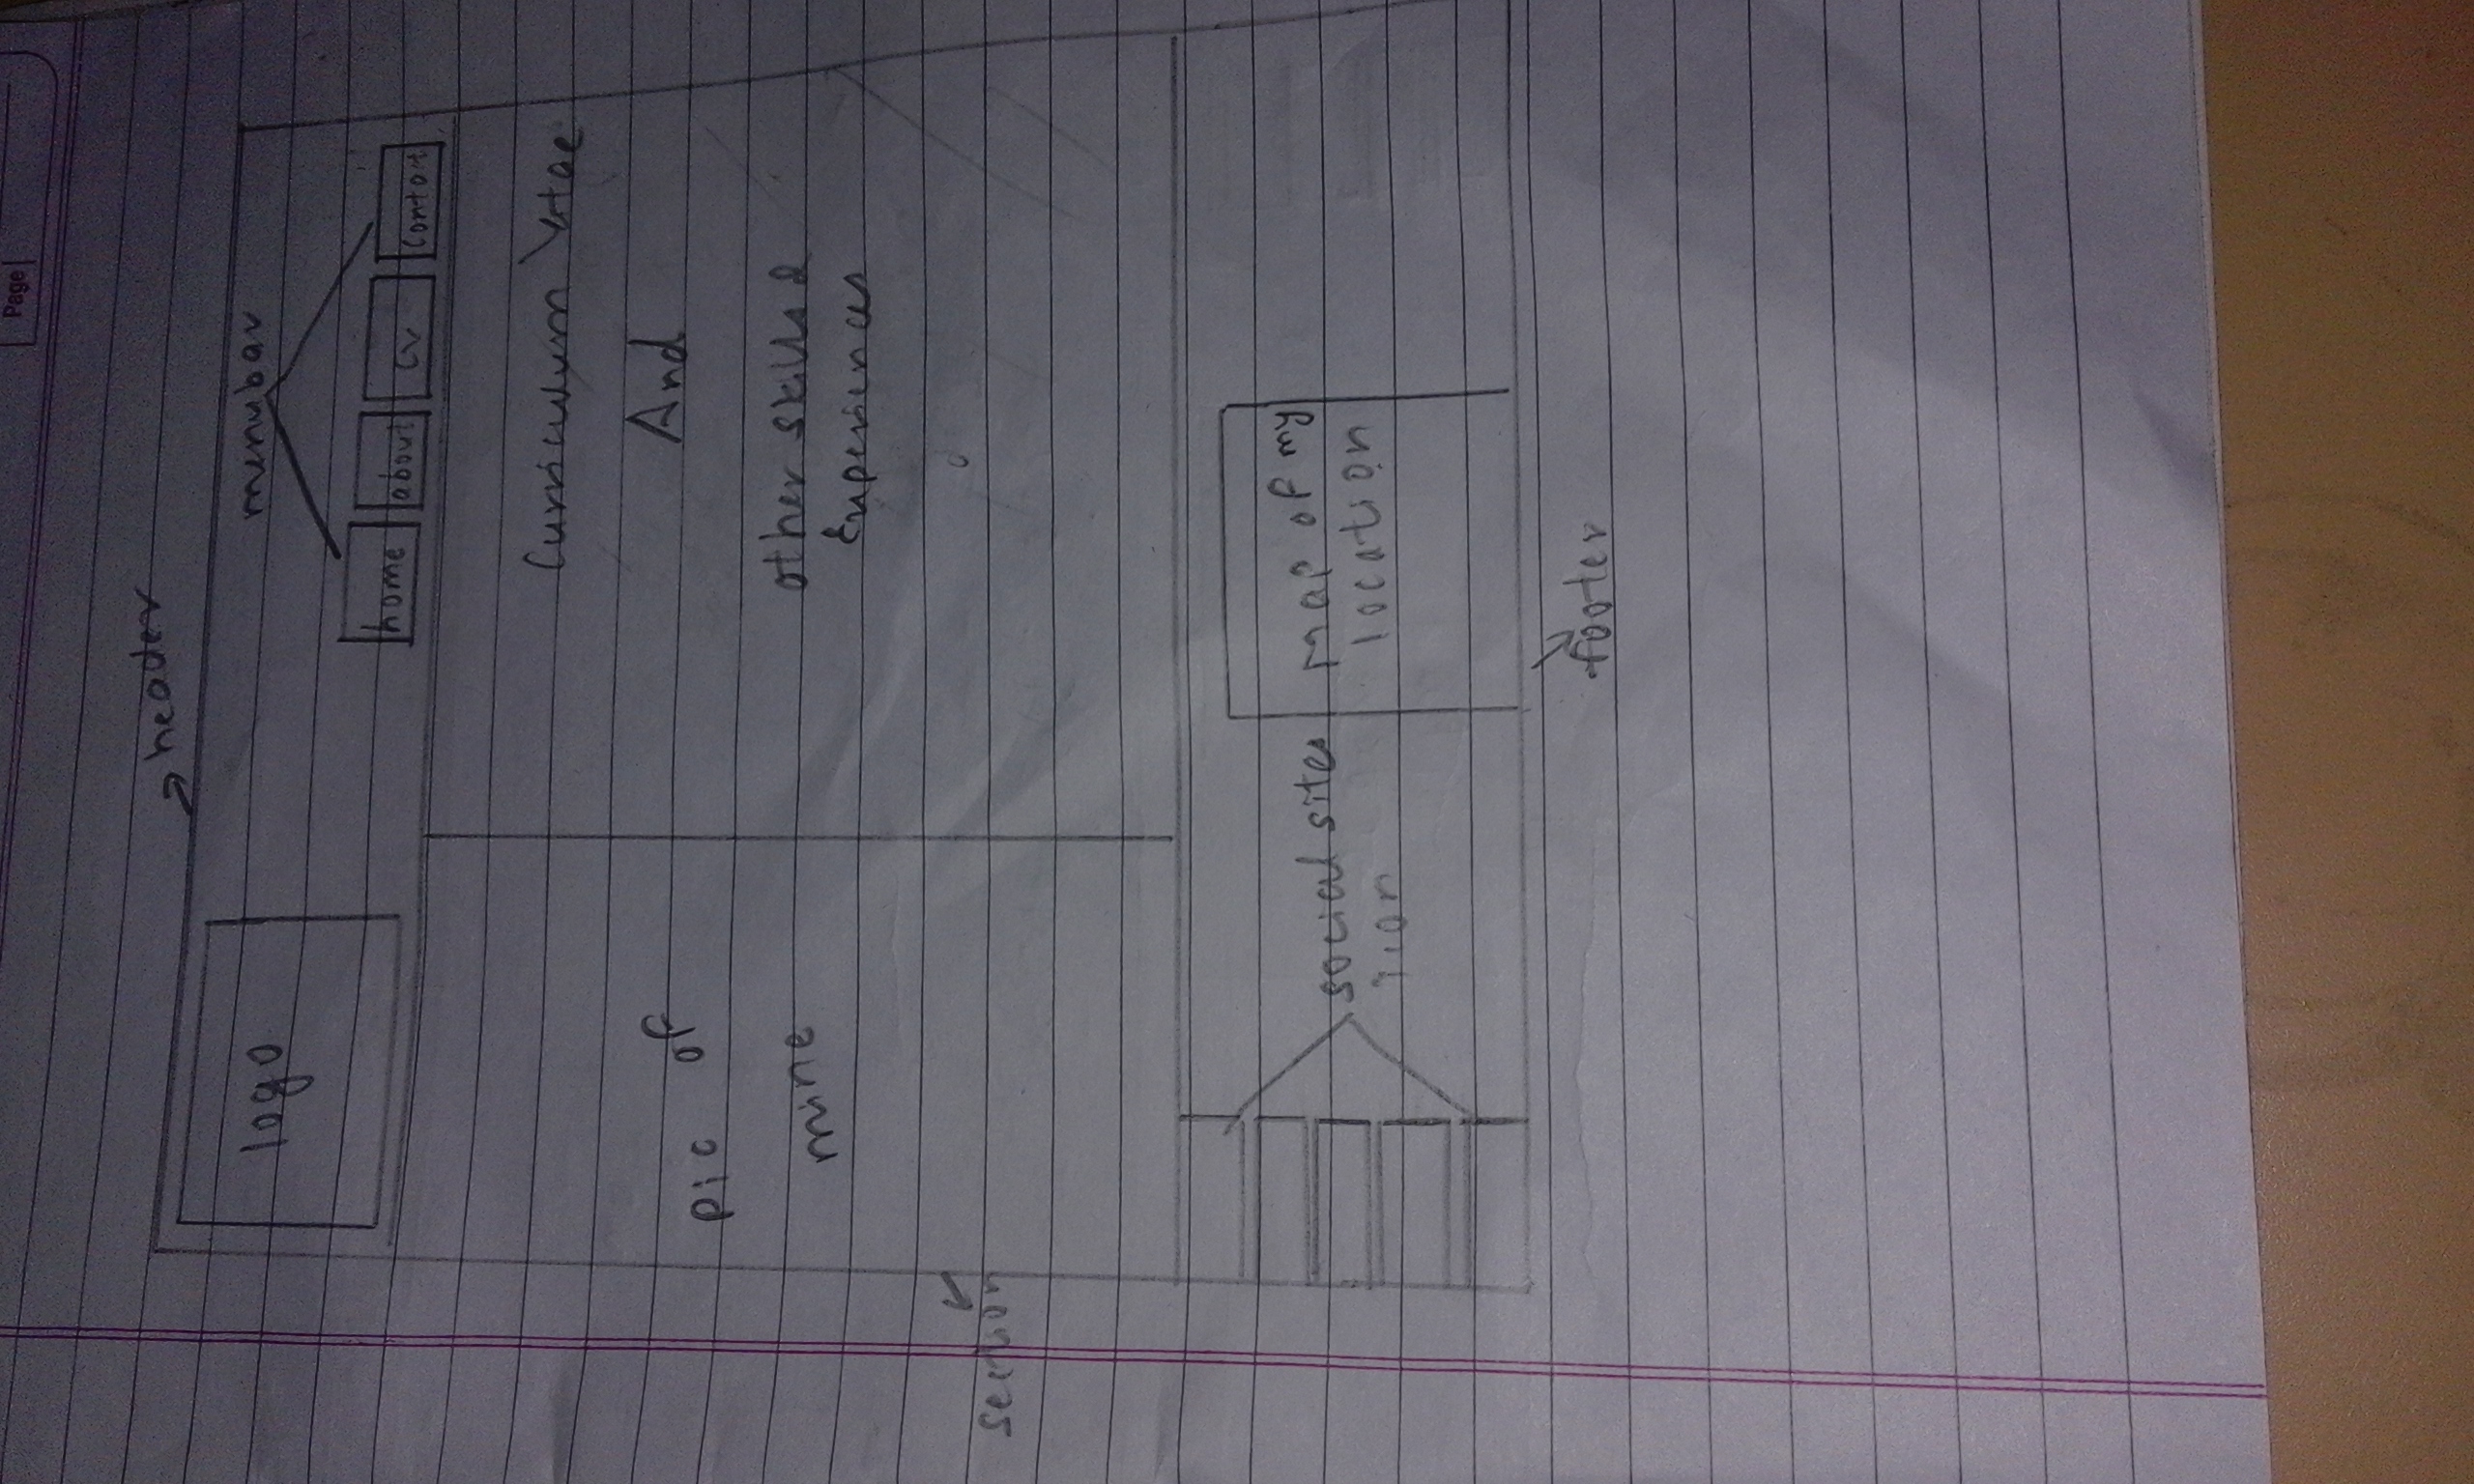 Page
header
logo
menubar
home about cv contact
Curriculum Vitae
And
pic of
mine
other skills &
Experiences
section
social sites
icon
map of my
location
footer